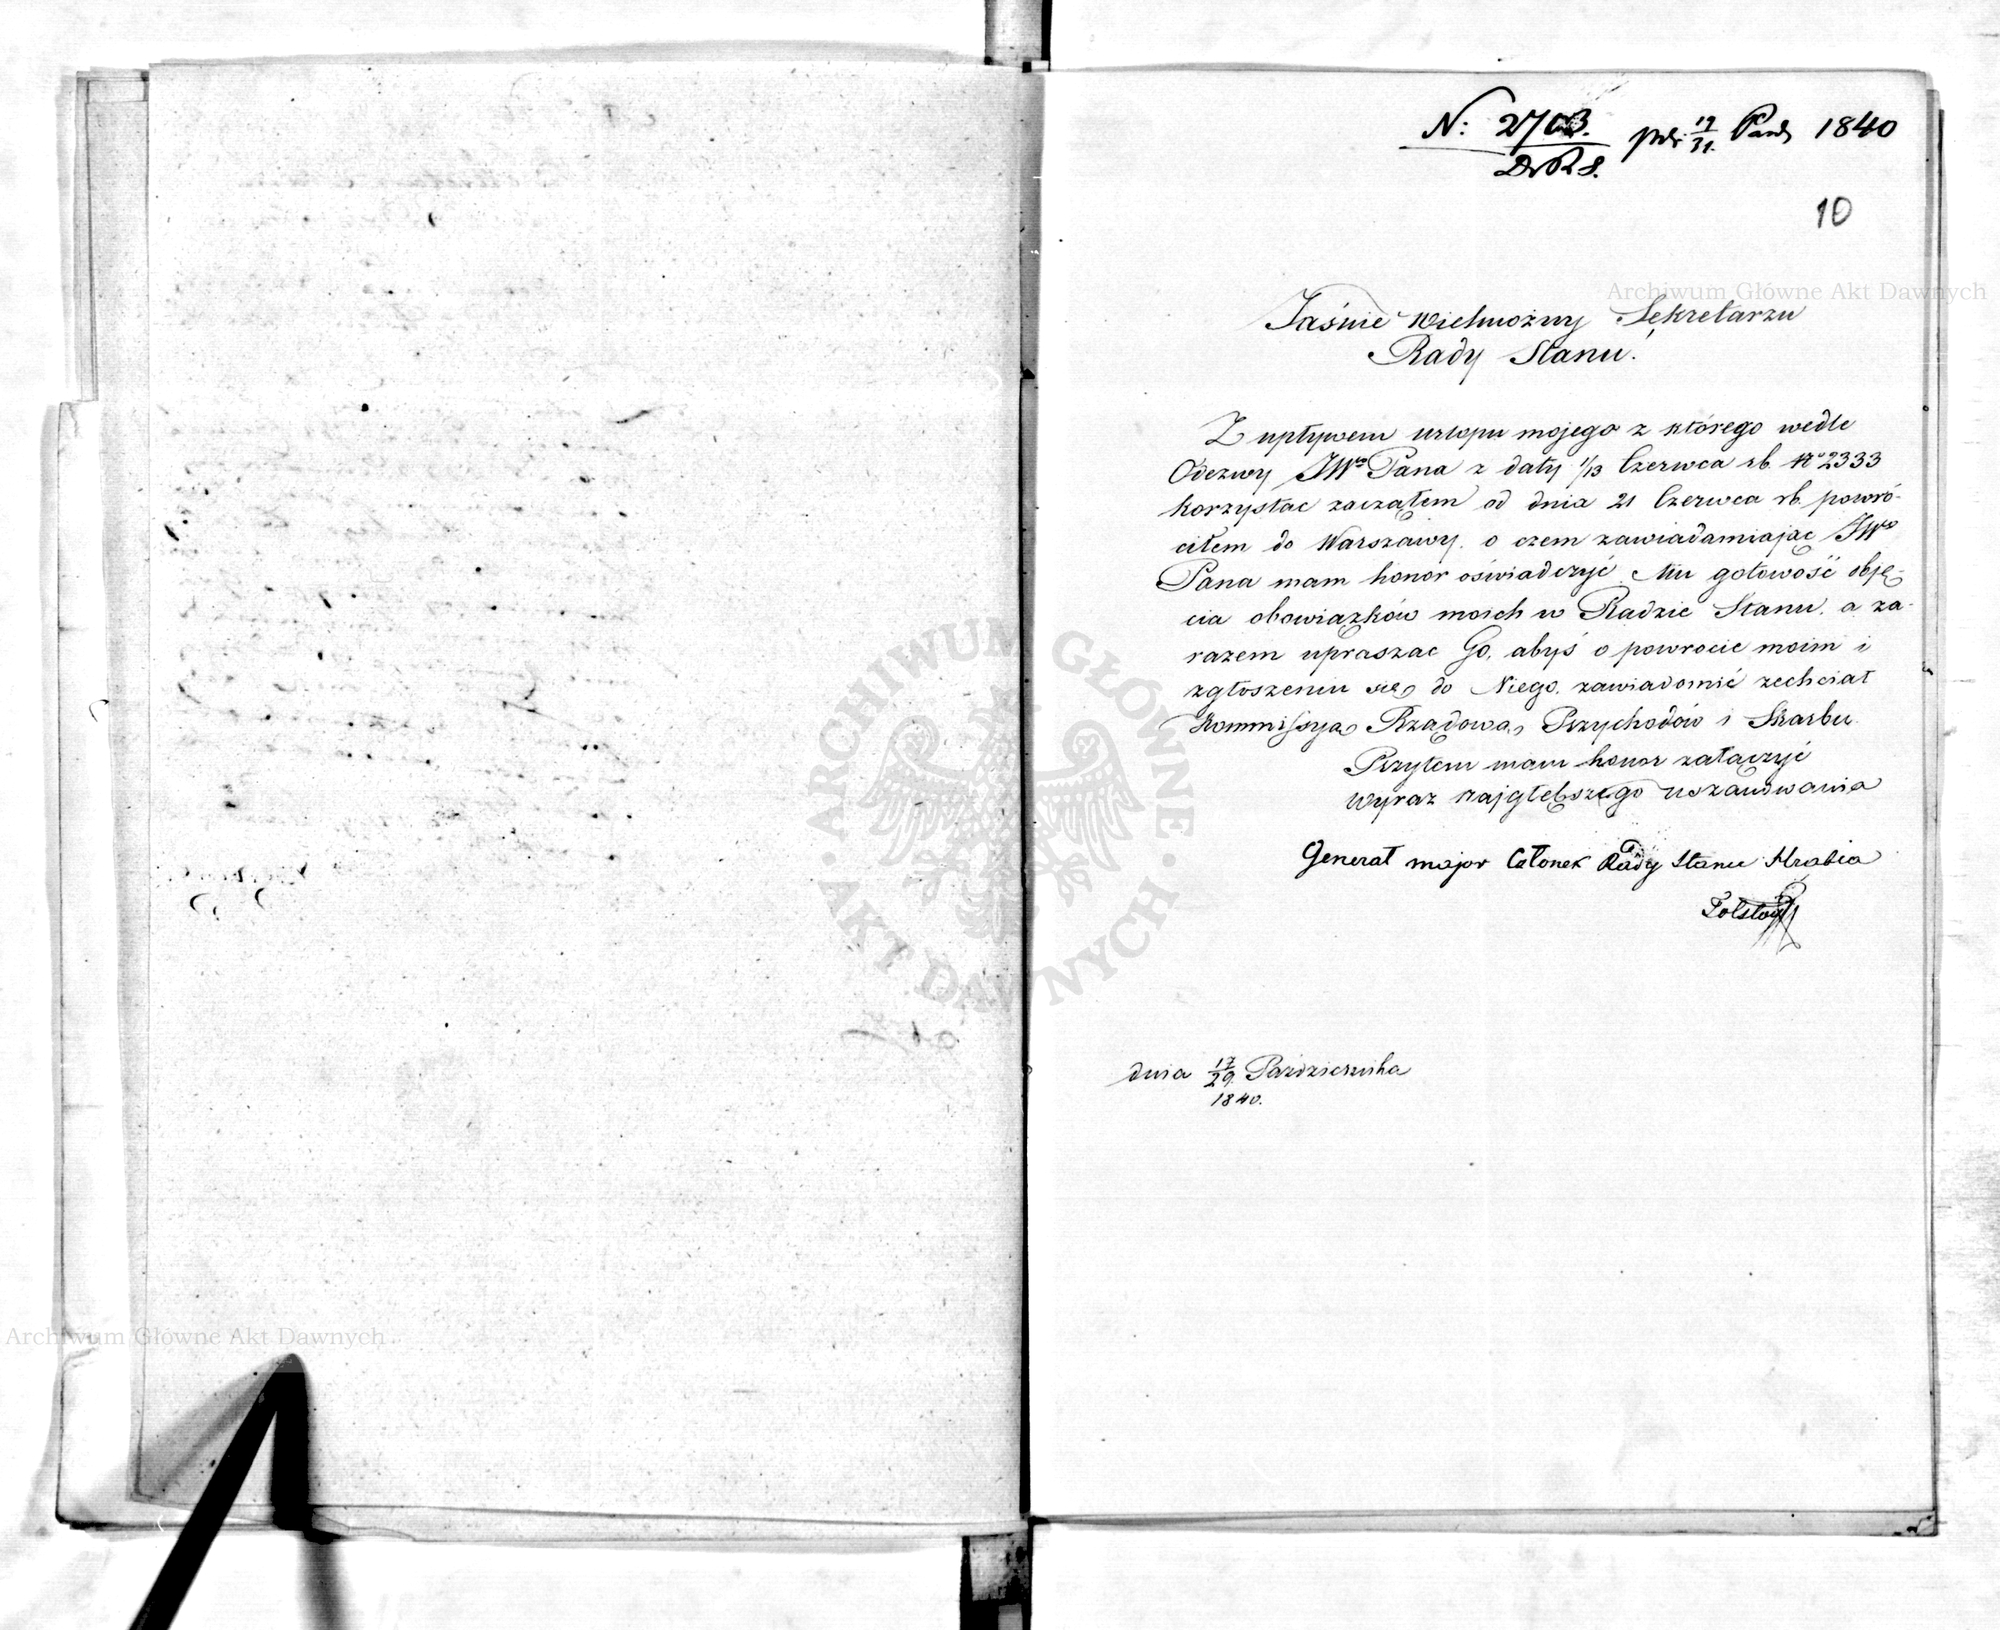 N: 2703. pdr 19/31. Paźd 1840
DrRS.
10
Archiwum Główne Akt Dawnych
Jaśnie Wielmożny Sekretarzu
Rady Stanu.
Z upływem urlopu mojego z którego wedle
Odezwy JWo Pana z daty 1/13 Czerwca rb. No 2333
korzystac zacząłem od dnia 21 Czerwca rb. powró-
ciłem do Warszawy. o czem zawiadamiając JWo
Pana mam honor oświadczyć Mu gotowość obję-
cia obowiązków moich w Radzie Stanu. a za-
razem upraszac Go, abyś o powrocie moim i
zgłoszeniu się do Niego. zawiadomić zechciał
Kommissyą Rządową Przychodów i Skarbu.
Przytem mam honor załączyć
wyraz najgłębszego uszanowania
Generał major Członek Rady Stanu Hrabia
Tolstoy
dnia 17/29. Października
1840.
ARCHIWUM GŁÓWNE AKT DAWNYCH
Archiwum Główne Akt Dawnych